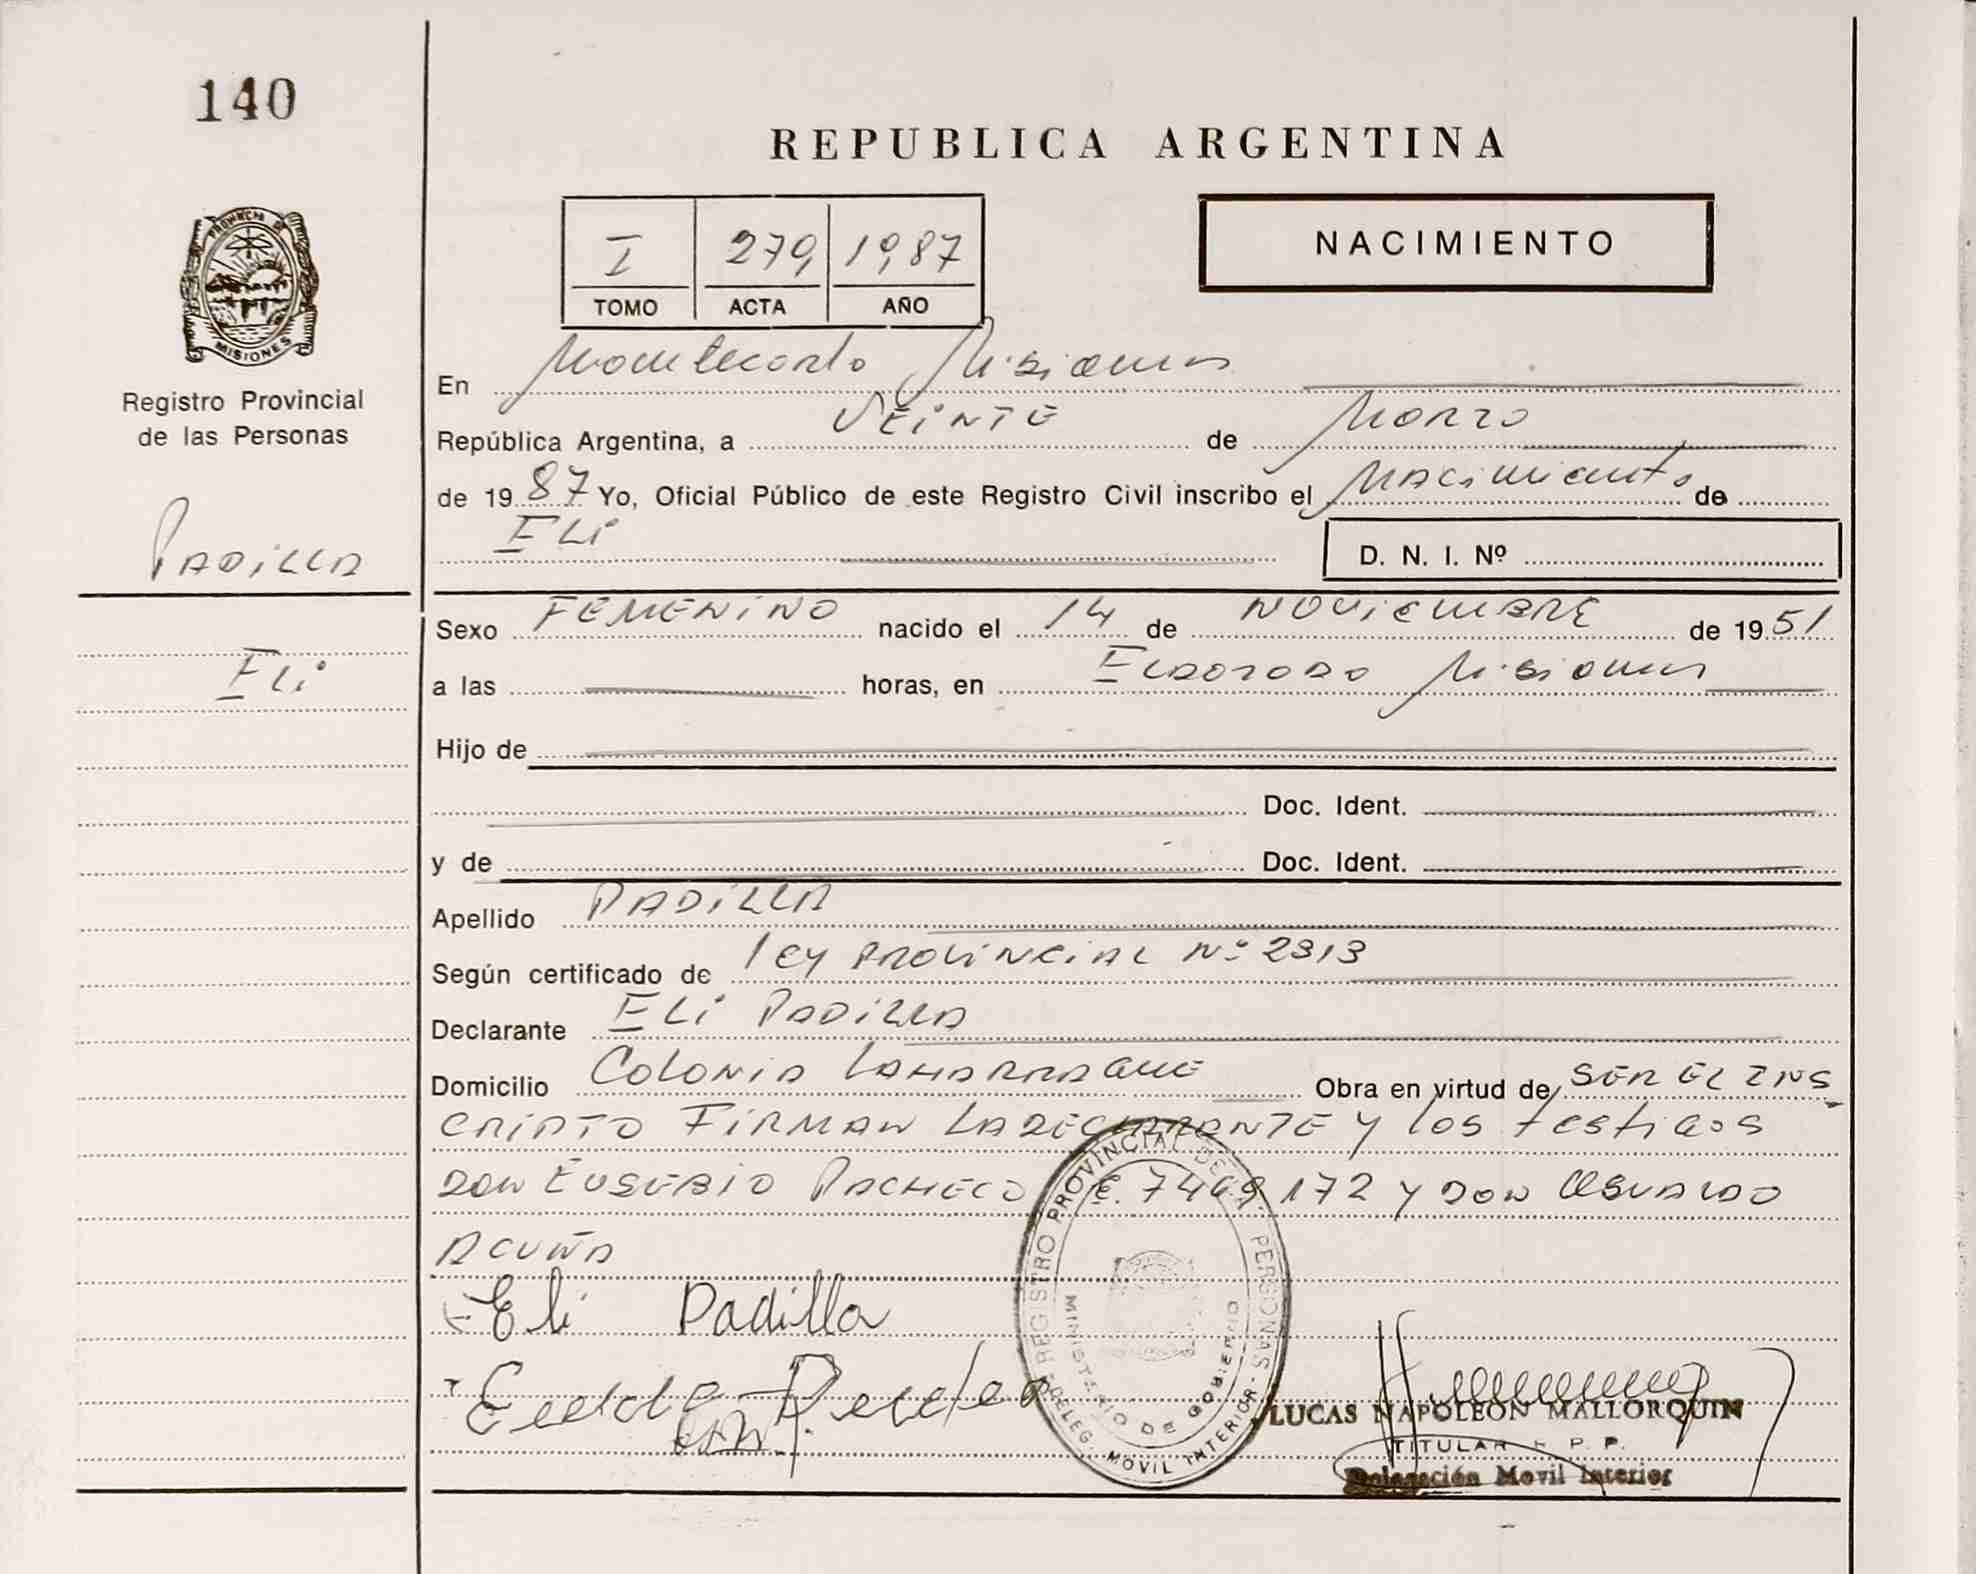 140
REPUBLICA ARGENTINA
I 279, 1987
TOMO ACTA AÑO
NACIMIENTO
PROVINCIA DE
MISIONES
Registro Provincial
de las Personas
PADILLA
ELi
En Montecarlo Misiones
República Argentina, a VEINTE de Marzo
de 1987 Yo, Oficial Público de este Registro Civil inscribo el Nacimiento de
ELi
D. N. I. Nº
Sexo FEMENINO nacido el 14 de NOViEMBRE de 1951
a las horas, en ELDORADO Misiones
Hijo de
Doc. Ident.
y de Doc. Ident.
Apellido PADILLA
Según certificado de ley PROVINCIAL Nº 2313
Declarante ELi PADILLA
Domicilio COLONIA LAHARRAGUE Obra en virtud de SER EL INS
CRIPTO FIRMAN LA DECLARANTE Y los testigos
DON EUSEBIO PACHECO C. 7469172 Y DON OSVALDO
ACUÑA
Eli Padilla
REGISTRO PROVINCIAL DE LAS PERSONAS
MINISTERIO DE GOBIERNO
DELEG. MOVIL INTERIOR
LUCAS NAPOLEON MALLORQUIN
TITULAR R. P. P.
Delegación Movil Interior